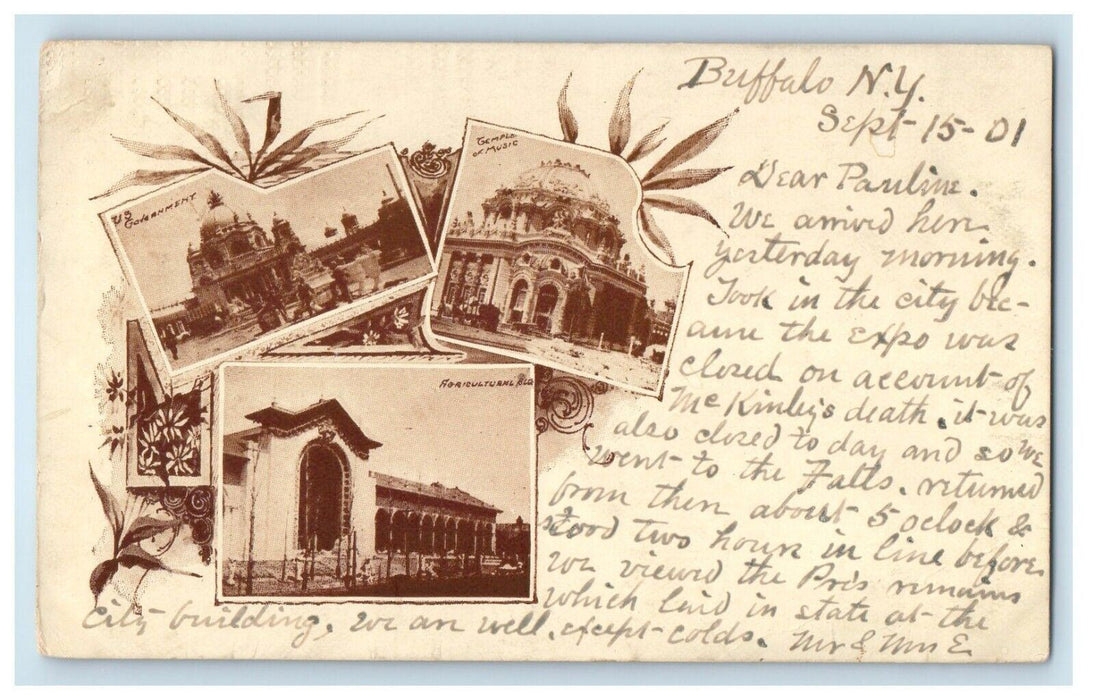 US
GOVERNMENT
TEMPLE
OF MUSIC
AGRICULTURAL BLD
Buffalo N.Y.
Sept-15-01
Dear Pauline.
We arrived here
yesterday morning.
Took in the city bec-
ause the expo was
closed on account of
McKinley's death. it was
also closed to day and so we
went to the Falls. returned
from there about 5 oclock &
stood two hours in line before
we viewed the Pres remains
which laid in state at the
City building. We are well, except colds. Mr & Mrs E.